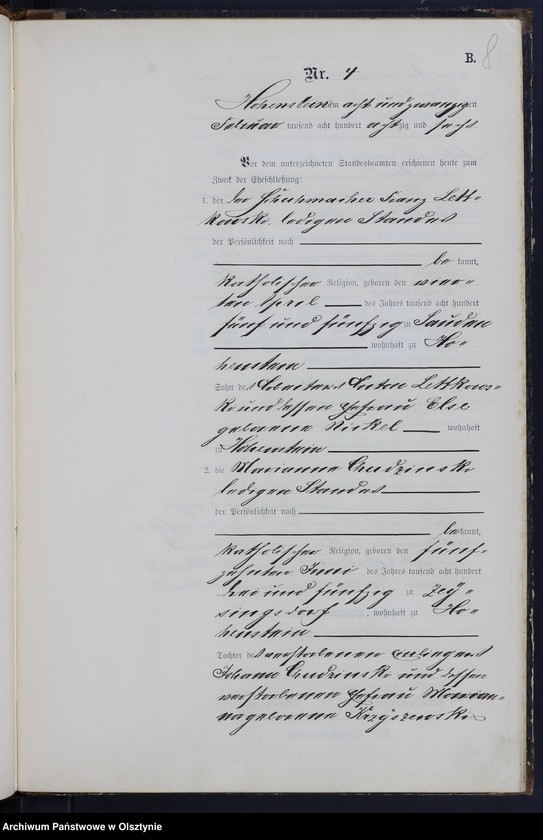 B. 8
Nr. 4
Hohenstein am acht und zwanzigsten
Februar tausend acht hundert achtzig und sechs
Vor dem unterzeichneten Standesbeamten erschienen heute zum
Zweck der Eheschließung:
1. der der Schuhmacher Franz Lett-
kowski, ledigen Standes
der Persönlichkeit nach
be kannt,
katholischer Religion, geboren den vier-
ten April des Jahres tausend acht hundert
fünf und fünfzig zu
wohnhaft zu Ho-
henstein
Sohn des Arbeiters Anton Lettkows-
ki und dessen Ehefrau Else
geborene Nickel wohnhaft
zu Hohenstein
2. die Marianna Grudzinski
ledigen Standes
der Persönlichkeit nach
bekannt,
katholischer Religion, geboren den fünf-
zehnten Juni des Jahres tausend acht hundert
und fünfzig zu
singsdorf, wohnhaft zu Ho-
henstein
Tochter des verstorbenen Einliegers
Johann Grudzinski und dessen
verstorbenen Ehefrau Marian-
na geborene Krzyszewski
Archiwum Państwowe w Olsztynie